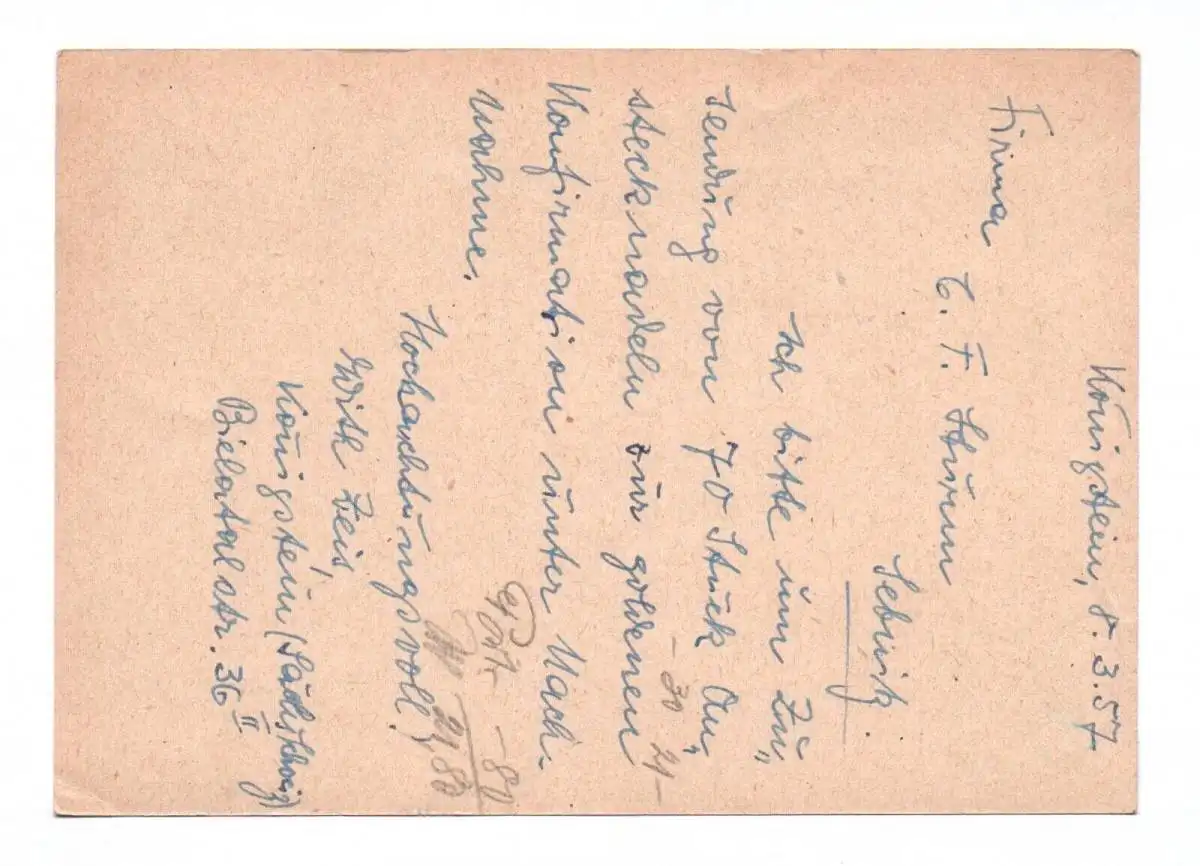 Königstein, 8. 3. 57
Firma
C. F. Sturm
Sebnitz.
Ich bitte um Zu„
sendung von 70 Stück An„
- 30 21-
stecknadeln zur goldenen
Konfirmation unter Nach-
nahme.
Port - 80
21 80
Hochachtungsvoll!
Zeis
Königstein (Sächs. Schweiz)
Bielatalstr. 36 II